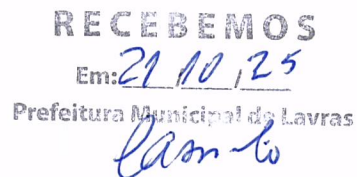 RECEBEMOS
Em: 21/10/25
Prefeitura Municipal de Lavras